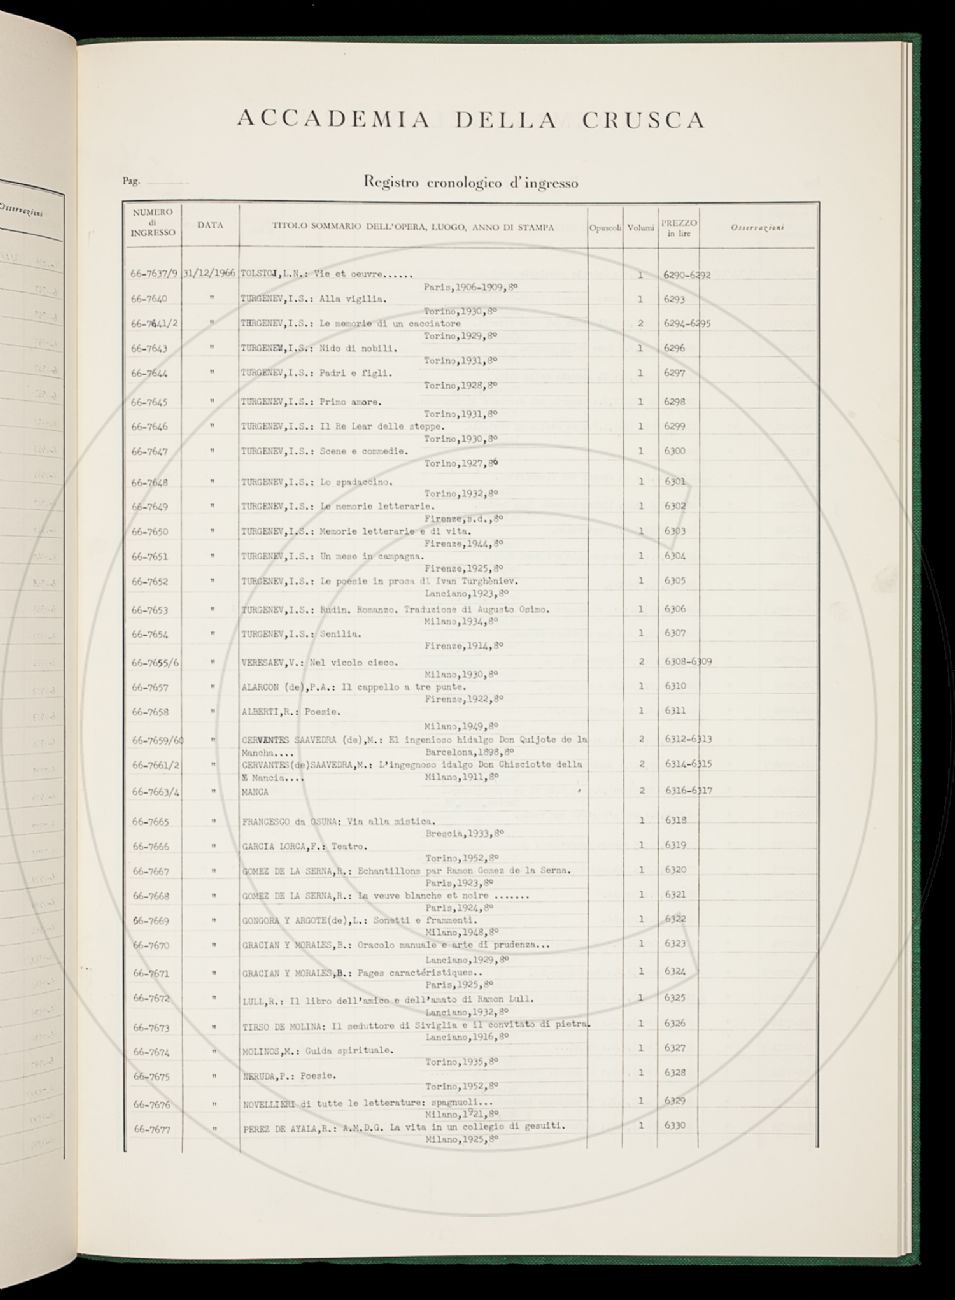 Osservazioni
ACCADEMIA DELLA CRUSCA
Pag.
Registro cronologico d'ingresso
NUMERO di INGRESSO DATA TITOLO SOMMARIO DELL'OPERA, LUOGO, ANNO DI STAMPA Opuscoli Volumi PREZZO in lire Osservazioni
66-7637/9 31/12/1966 TOLSTOJ,L.N.: Vie et oeuvre...... 1 6290-6292
Paris,1906-1909,8º
66-7640 " TURGENEV,I.S.: Alla vigilia. 1 6293
Torino,1930,8º
66-7641/2 " TURGENEV,I.S.: Le memorie di un cacciatore 2 6294-6295
Torino,1929,8º
66-7643 " TURGENEV,I.S.: Nido di nobili. 1 6296
Torino,1931,8º
66-7644 " TURGENEV,I.S.: Padri e figli. 1 6297
Torino,1928,8º
66-7645 " TURGENEV,I.S.: Primo amore. 1 6298
Torino,1931,8º
66-7646 " TURGENEV,I.S.: Il Re Lear delle steppe. 1 6299
Torino,1930,8º
66-7647 " TURGENEV,I.S.: Scene e commedie. 1 6300
Torino,1927,8º
66-7648 " TURGENEV,I.S.: Lo spadaccino. 1 6301
Torino,1932,8º
66-7649 " TURGENEV,I.S.: Le memorie letterarie. 1 6302
Firenze,s.d.,8º
66-7650 " TURGENEV,I.S.: Memorie letterarie e di vita. 1 6303
Firenze,1944,8º
66-7651 " TURGENEV,I.S.: Un mese in campagna. 1 6304
Firenze,1925,8º
66-7652 " TURGENEV,I.S.: Le poesie in prosa di Ivan Turghèniev. 1 6305
Lanciano,1923,8º
66-7653 " TURGENEV,I.S.: Rudin. Romanzo. Traduzione di Augusto Osimo. 1 6306
Milano,1934,8º
66-7654 " TURGENEV,I.S.: Senilia. 1 6307
Firenze,1914,8º
66-7655/6 " VERESAEV,V.: Nel vicolo cieco. 2 6308-6309
Milano,1930,8º
66-7657 " ALARCON (de),P.A.: Il cappello a tre punte. 1 6310
Firenze,1922,8º
66-7658 " ALBERTI,R.: Poesie. 1 6311
Milano,1949,8º
66-7659/60 " CERVANTES SAAVEDRA (de),M.: El ingenioso hidalgo Don Quijote de la 2 6312-6313
Mancha.... Barcelona,1898,8º
66-7661/2 " CERVANTES(de)SAAVEDRA,M.: L'ingegnoso idalgo Don Chisciotte della 2 6314-6315
Mancia.... Milano,1911,8º
66-7663/4 " MANCA 2 6316-6317
66-7665 " FRANCESCO da OSUNA: Via alla mistica. 1 6318
Brescia,1933,8º
66-7666 " GARCIA LORCA,F.: Teatro. 1 6319
Torino,1952,8º
66-7667 " GOMEZ DE LA SERNA,R.: Echantillons par Ramon Gomez de la Serna. 1 6320
Paris,1923,8º
66-7668 " GOMEZ DE LA SERNA,R.: La veuve blanche et noire ....... 1 6321
Paris,1924,8º
66-7669 " GONGORA Y ARGOTE(de),L.: Sonetti e frammenti. 1 6322
Milano,1948,8º
66-7670 " GRACIAN Y MORALES,B.: Oracolo manuale e arte di prudenza... 1 6323
Lanciano,1929,8º
66-7671 " GRACIAN Y MORALES,B.: Pages caractéristiques.. 1 6324
Paris,1925,8º
66-7672 " LULL,R.: Il libro dell'amico e dell'amato di Ramon Lull. 1 6325
Lanciano,1932,8º
66-7673 " TIRSO DE MOLINA: Il seduttore di Siviglia e il convitato di pietra. 1 6326
Lanciano,1916,8º
66-7674 " MOLINOS,M.: Guida spirituale. 1 6327
Torino,1935,8º
66-7675 " NERUDA,P.: Poesie. 1 6328
Torino,1952,8º
66-7676 " NOVELLIERI di tutte le letterature: spagnuoli... 1 6329
Milano,1921,8º
66-7677 " PEREZ DE AYALA,R.: A.M.D.G. La vita in un collegio di gesuiti. 1 6330
Milano,1925,8º